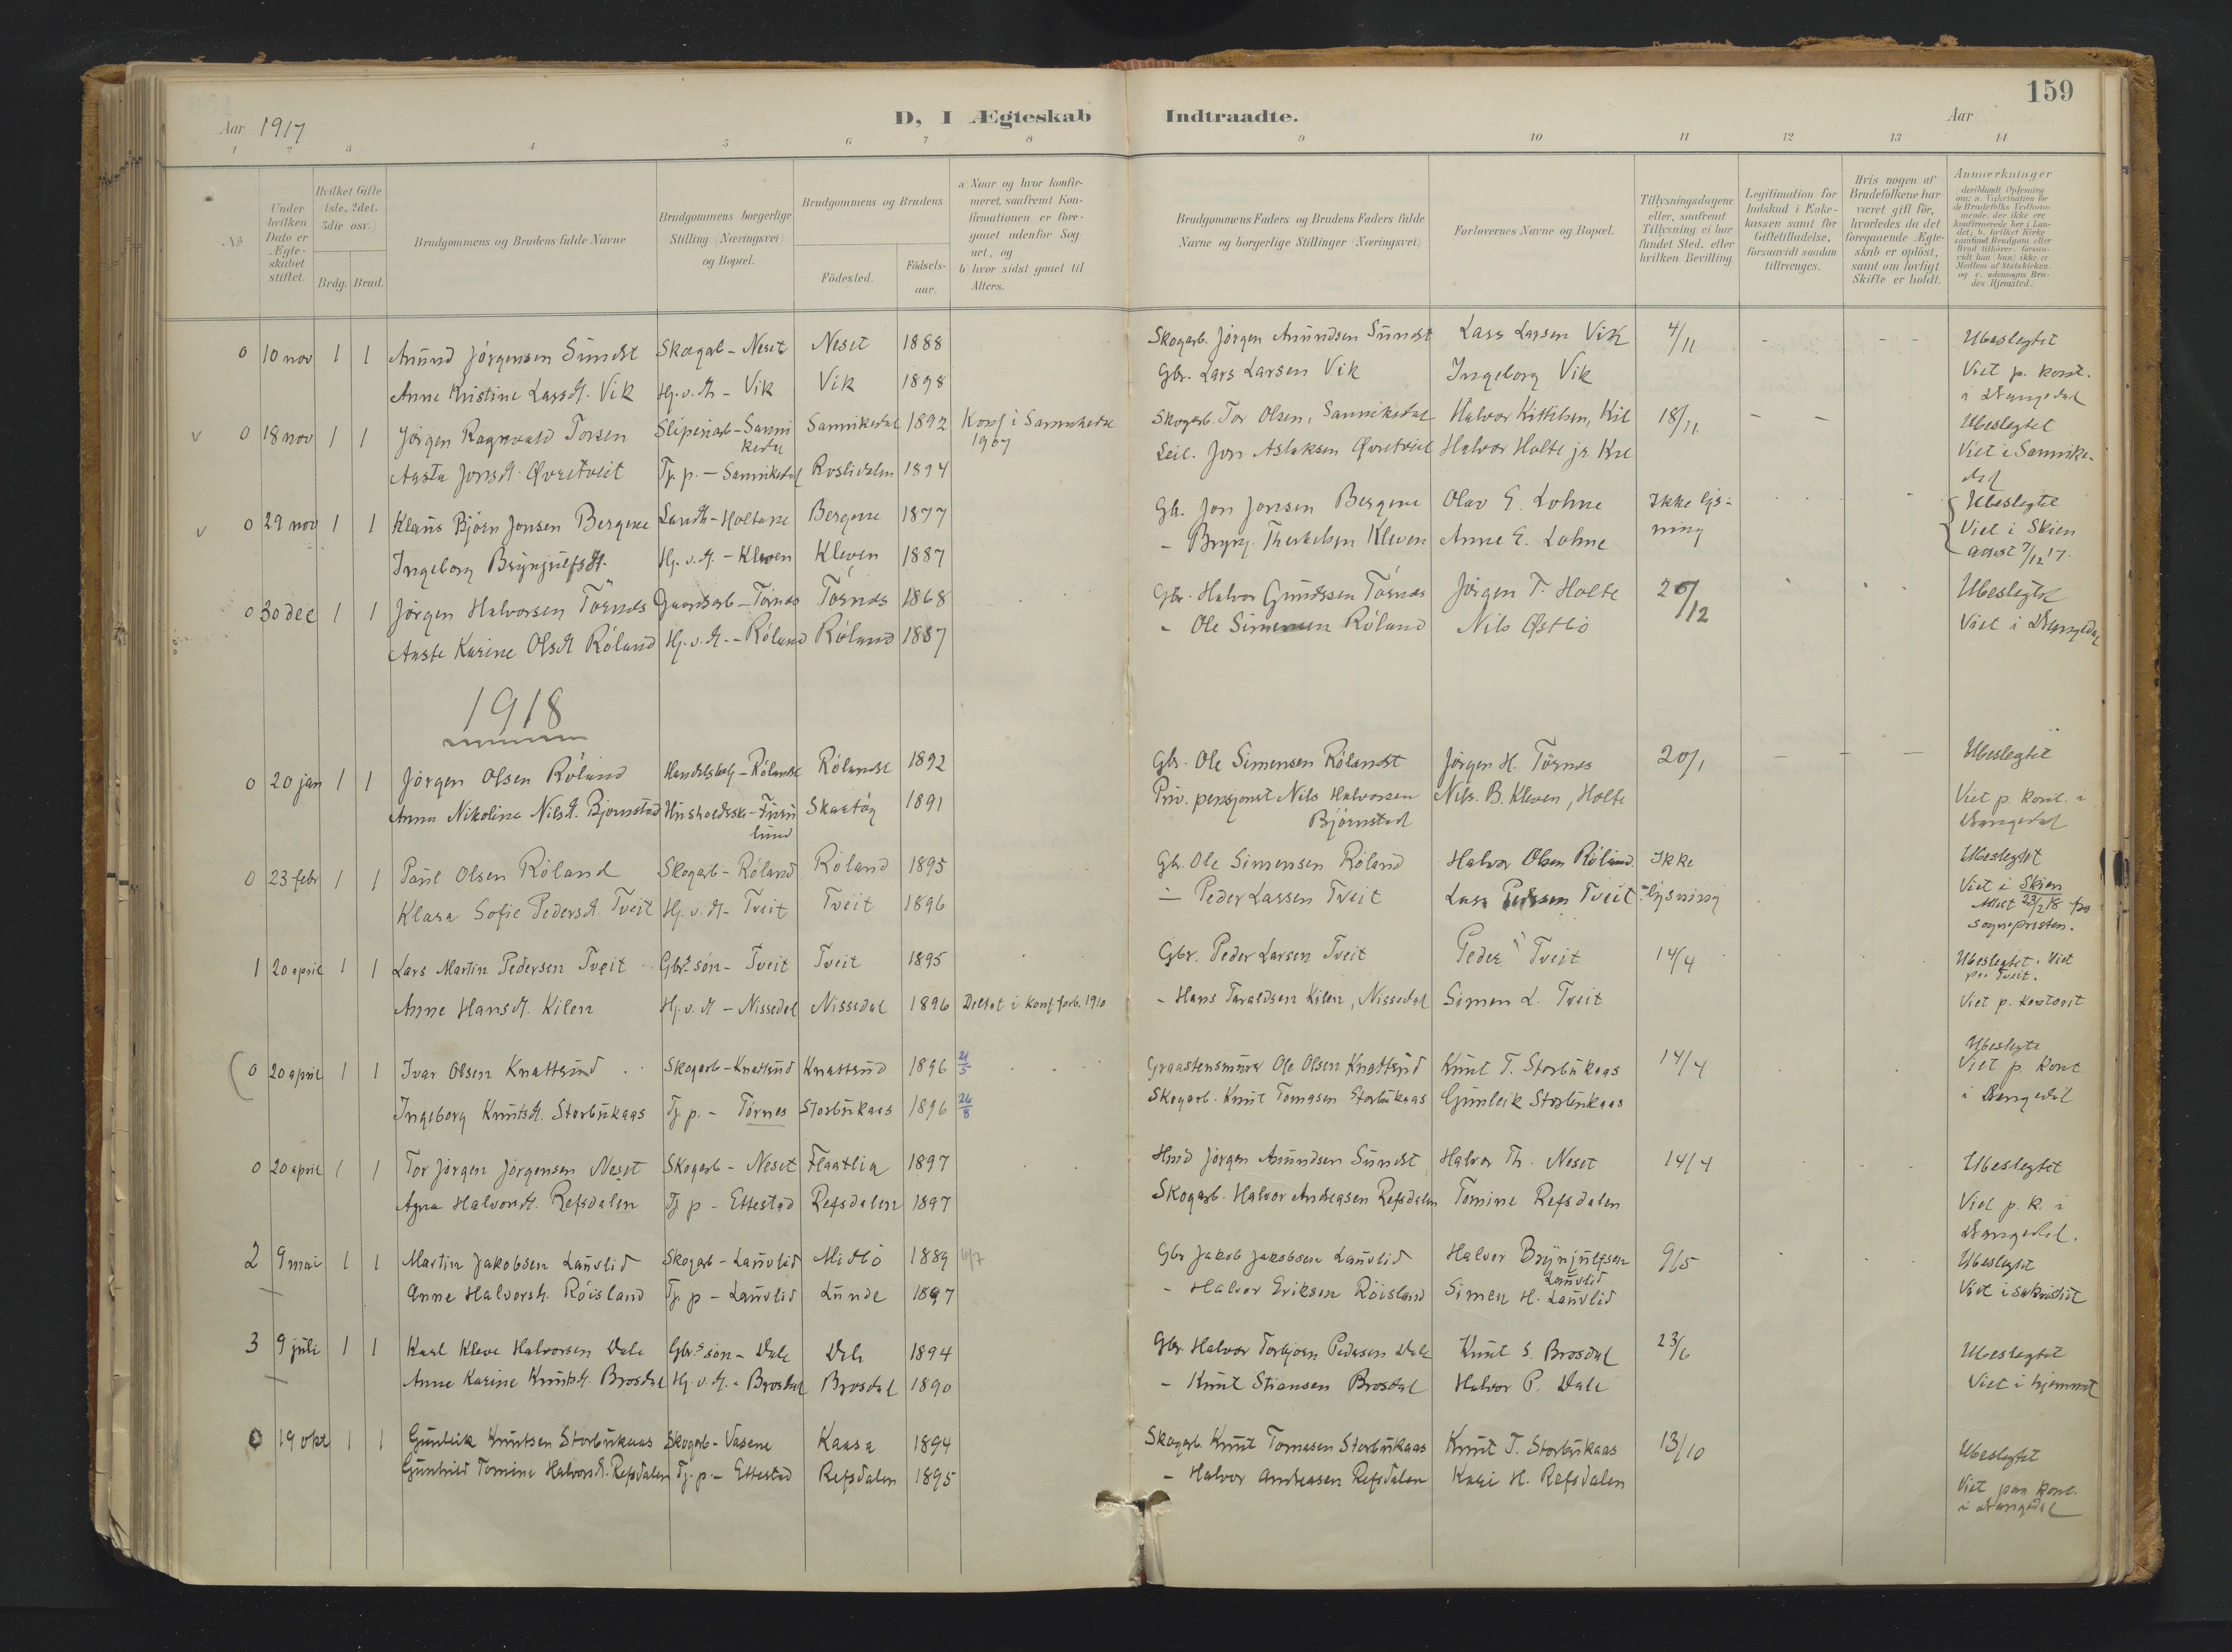 159
Aar 1917
D, I Ægteskab Indtraadte.
Aar
1 2 3 4 5 6 7 8 9 10 11 12 13 14
No
Under hvilken Dato er Ægteskabet stiftet.
Hvilket Gifte 1ste, 2det, 3die osv.)
Brdg. Brud.
Brudgommens og Brudens fulde Navne
Brudgommens borgerlige Stilling (Næringsvei) og Bopæl.
Brudgommens og Brudens
Födested.
Födsels-aar.
a) Naar og hvor konfirmeret, saafremt Konfirmationen er foregaaet udenfor Sognet, og
b) hvor sidst gaaet til Alters.
Brudgommens Faders og Brudens Faders fulde Navne og borgerlige Stillinger (Næringsvei)
Forlovernes Navne og Bopæl.
Tillysningsdagene eller, saafremt Tillysning ei har fundet Sted, efter hvilken Bevilling.
Legitimation for Indskud i Enkekassen samt for Giftetilladelse, forsaavidt saadan tiltrænges.
Hvis nogen af Brudefolkene har været gift för, hvorledes da det foregaaende Ægteskab er oplöst, samt om lovligt Skifte er holdt.
Anmærkninger
(deriblandt Oplysning om: a. Vakcination for de Brudefolks Vedkommende, der ikke ere konfirmerede her i Landet; b. hvilket Kirkesamfund Brudgom eller Brud tilhörer, forsaavidt han (hun) ikke er Medlem af Statskirken, og c. udensogns Brudes Hjemsted.)
0 10 nov 1 1 Anund Jörgensen Sundst Skogarb - Neset Neset 1888 Skogarb. Jörgen Anundsen Sundst Lars Larsen Vik 4/11 - - - Ubeslegtet
Anne Kristine Larsdt. Vik Hj.v.dt - Vik Vik 1898 Gbr. Lars Larsen Vik Ingeborg Vik Viet p. kont.
i Drangedal
v 0 18 nov 1 1 Jörgen Ragnvald Torsen Sliperiarb - Sanni Sannikedal 1892 Konf i Sannikedal Skogarb. Tor Olsen, Sannikedal Halvor Kittilsen, Kil 18/11 - - Ubeslegtet
kedal 1907
Aasta Jonsdt. Øvretveit Tj. p. - Sannikedal Roslidalen 1894 Leil. Jon Aslaksen Øvretveit Halvor Holte jr. Kil Viet i Sannike-
dal
v 0 29 nov 1 1 Klaus Bjorn Jonsen Bergene Landh - Holtane Bergene 1877 Gb. Jon Jonsen Bergene Olav E. Lohne Ikke lys- Ubeslegtet
Ingeborg Brynjulfsdt. Hj.v.dt - Kleven Kleven 1887 - Brynj. Therkelsen Kleven Anne E. Lohne ning Viet i Skien
attest 7/12 17.
0 30 dec 1 1 Jörgen Halvorsen Törnes Gaardsarb - Törnes Törnes 1868 Gbr. Halvor Gundssen Törnes Jörgen T. Holte 26/12 Ubeslegtet
Aaste Karine Olsdt Röland Hj.v.dt - Röland Röland 1887 - Ole Simensen Röland Nils Østbö Viet i Drangedal
1918
0 20 jan 1 1 Jörgen Olsen Röland Handelsbetj - Rölandst Rölandst 1892 Gbr. Ole Simensen Rölandst Jörgen H. Törnes 20/1 - - - Ubeslegtet
Anna Nikoline Nilsdt. Bjornstad Husholdsske - Furu Skaatöy 1891 Priv. pensjonist Nils Halvorsen Nils. B. Kleven, Holte Viet p. kont. i
lund Björnstad Drangedal
0 23 febr 1 1 Paul Olsen Röland Skogarb - Röland Röland 1895 Gb. Ole Simensen Röland Halvor Olsen Röland Ikke Ubeslegtet
Klara Sofie Pedersdt. Tveit Hj.v.dt - Tveit Tveit 1896 - Peder Larsen Tveit Lars Pedersen Tveit lysning Viet i Skien
Attest 23/2 18 fra
sognepresten.
1 20 april 1 1 Lars Martin Pedersen Tveit Gbr.s sön - Tveit Tveit 1895 Gbr. Peder Larsen Tveit Peder Tveit 14/4 Ubeslegtet. Viet
paa Tveit.
Anne Hansdt. Kilen Hj.v.dt - Nissedal Nissedal 1896 Deltat i konf. forb. 1910 - Hans Taraldsen Kilen, Nissedal Simen L. Tveit Viet p. kontoret
0 20 april 1 1 Ivar Olsen Knattsund Skogarb - Knattsund Knattsund 1896 21/5 Graastensmurer Ole Olsen Knattsund Knut T. Storbukaas 14/4 Ubeslegte
Viet p. kont
Ingeborg Knutsdt. Storbukaas Tj. p. - Törnes Storbukaas 1896 26/8 Skogarb. Knut Tomasen Storbukaas Gunleik Storbukaas i Drangedal
0 20 april 1 1 Tor Jörgen Jörgensen Neset Skogarb - Neset Flaatlia 1897 Hmd Jörgen Anundsen Sundst Halvor Th. Neset 14/4 Ubeslegtet
Agna Halvorsdt. Refsdalen Tj p - Ettestad Refsdalen 1897 Skogarb. Halvor Andreasen Refsdalen Tomine Refsdalen Viet p. k. i
Drangedal.
2 9 mai 1 1 Martin Jakobsen Lauvlid Skogarb - Lauvlid Midbö 1889 6/7 Gbr Jakob Jakobsen Lauvlid Halvor Brynjulfsen 9/5 Ubeslegtet
Lauvlid
Anne Halvorsdt. Röisland Tj. p - Lauvlid Lunde 1897 - Halvor Eriksen Röisland Simen H. Lauvlid Viet i sakristiet
3 9 juli 1 1 Karl Kleve Halvorsen Dale Gbr.s sön - Dale Dale 1894 Gbr. Halvor Torbjorn Pedersen Dale Knut S. Brosdal 23/6 Ubeslegtet
Anne Karine Knutsdt. Brosdal Hj.v.dt. - Brosdal Brosdal 1890 - Knut Stiansen Brosdal Halvor P. Dale Viet i hjemmet
0 19 okt 1 1 Gunleik Knutsen Storbukaas Skogarb - Vasene Kaasa 1894 Skogarb. Knut Tomasen Storbukaas Knut T. Storbukaas 13/10 Ubeslegtet
Gunhild Tomine Halvorsdt. Refsdalen Tj. p. - Ettestad Refsdalen 1895 - Halvor Andreasen Refsdalen Kari H. Refsdalen Viet paa kont.
i Drangedal